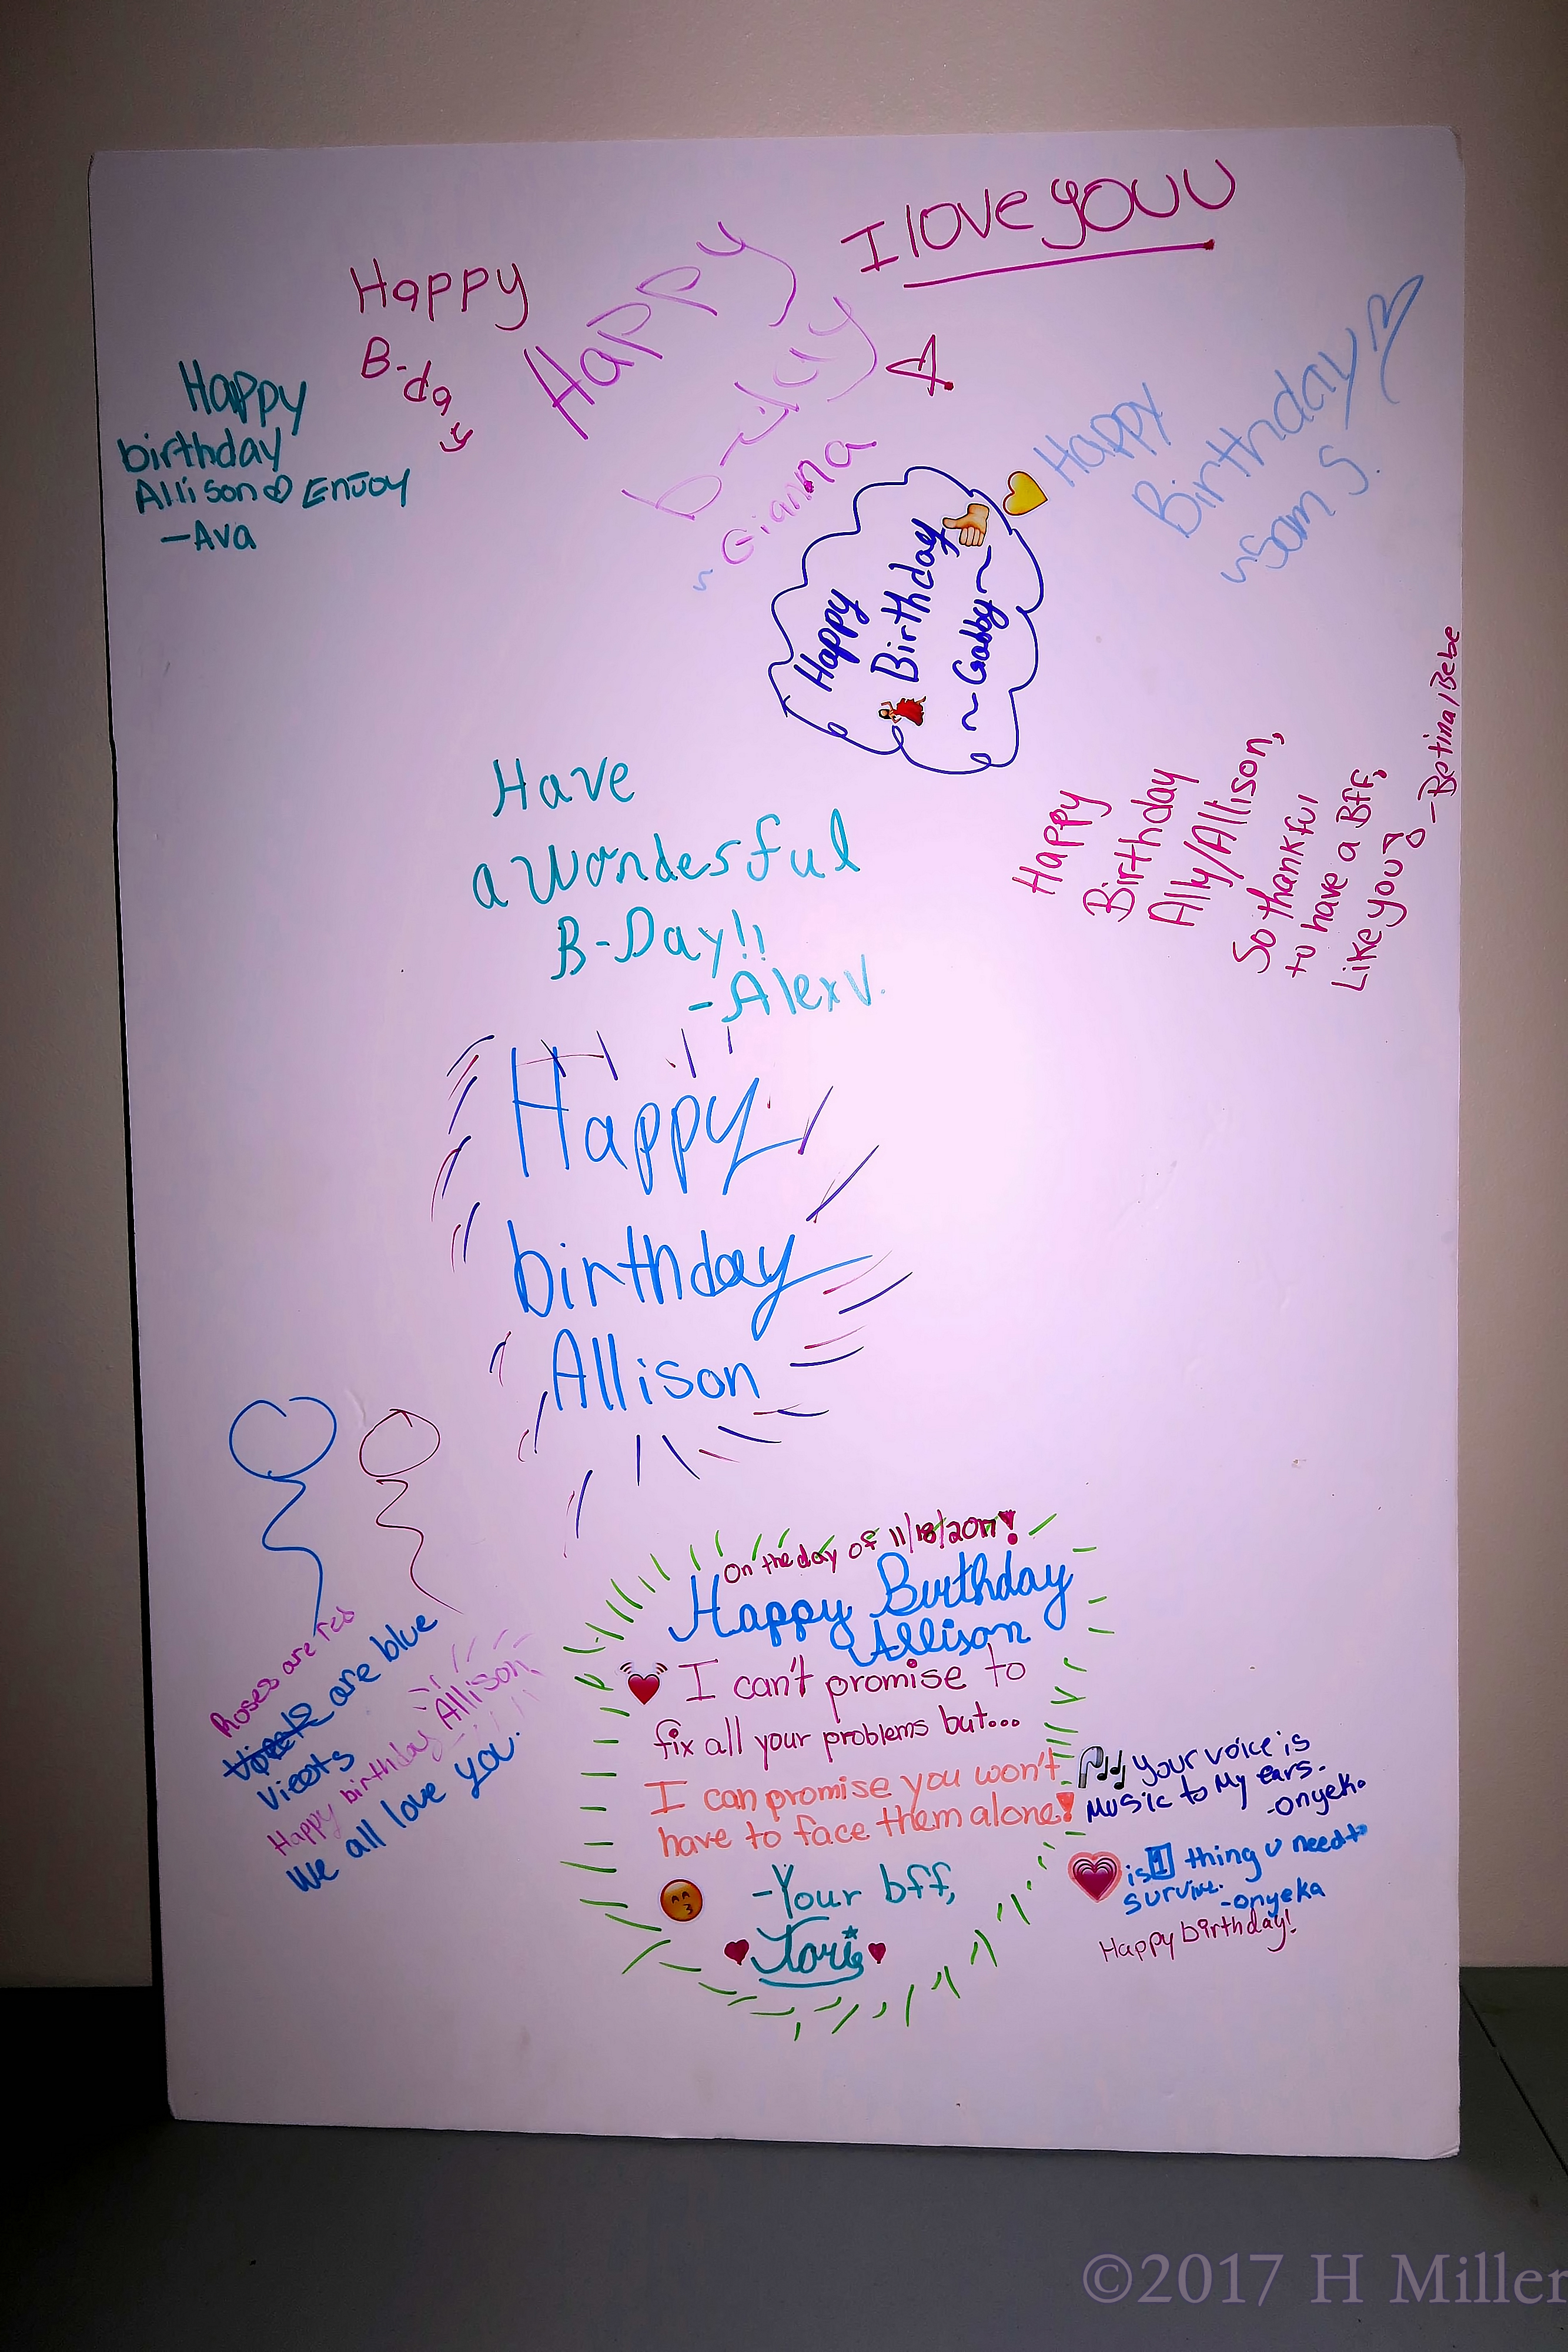 I love youu
Happy
B-day
Happy
b-day
~Gianna
Happy
birthday
Allison Enjoy
-Ava
Happy
Birthday
~Sam S.
Happy
Birthday
~Gabby~
Happy
Birthday
Ally/Allison,
So thankful
to have a Bff,
Like you
-Betina/Bebe
Have
a Wonderful
B-Day!!
-Alex V.
Happy
birthday
Allison
Roses are red
are blue
Vieots
Happy birthday Allison
We all love you.
On the day of 11/18/2017!
Happy Birthday
Allison
I can't promise to
fix all your problems but...
I can promise you won't
have to face them alone!
-Your bff,
Tori
Your voice is
Music to My ears.
-onyeka
is 1 thing u need to
survive.
-onyeka
Happy birthday!
©2017 H Miller